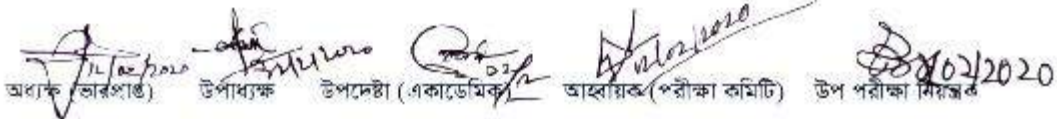 12/02/2020 12/02/2020 02/2 12/02/2020 02/2020
অধ্যক্ষ (ভারপ্রাপ্ত) উপাধ্যক্ষ উপদেষ্টা (একাডেমিক) আহ্বায়ক (পরীক্ষা কমিটি) উপ পরীক্ষা নিয়ন্ত্রক